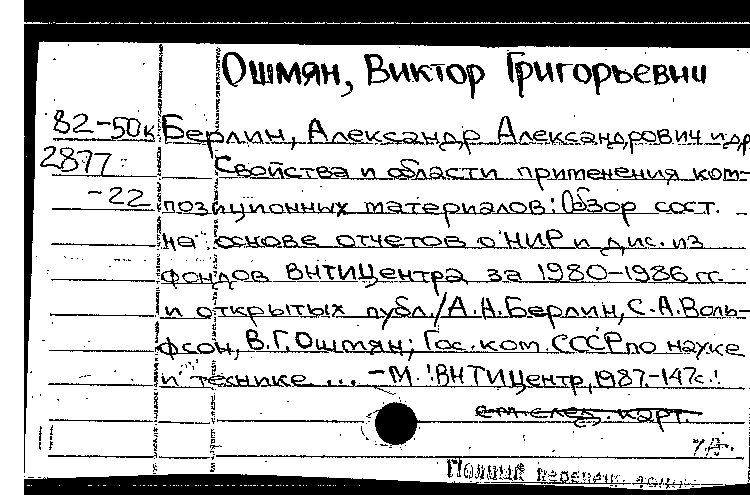 Ошмян, Виктор Григорьевич
82-50к Берлин, Александр Александрович и др
2877 Свойства и области применения ком-
-22 позиционных материалов: Обзор сост.
на основе отчетов о НИР и дис. из
фондов ВНТИЦентра за 1980-1986 гг.
и открытых публ./А.А.Берлин, С.А.Воль-
фсон, В.Г.Ошмян; Гос. ком. СССР по науке
и технике ... -М.:ВНТИЦентр, 1987.-147с.:
см.след. карт.